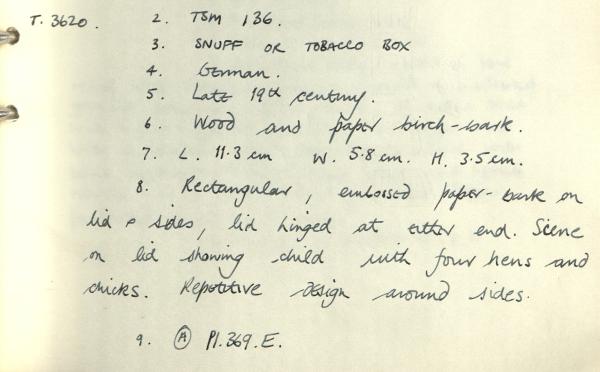 T. 3620. 2. TSM 136.
3. SNUFF OR TOBACCO BOX
4. German.
5. Late 19th century.
6. Wood and paper birch-bark.
7. L. 11.3 cm W. 5.8 cm. H. 3.5 cm.
8. Rectangular, embossed paper-bark on
lid & sides, lid hinged at either end. Scene
on lid showing child with four hens and
chicks. Repetitive design around sides.
9. Ⓐ Pl. 369. E.